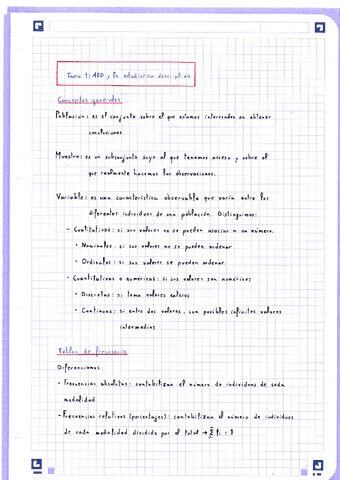 Tema 1: AED y la estadística descriptiva
Conceptos generales
Población: es el conjunto sobre el que estamos interesados en obtener
conclusiones
Muestra: es un subconjunto suyo al que tenemos acceso y sobre el
que realmente hacemos las observaciones.
Variable: es una característica observable que varía entre los
diferentes individuos de una población. Distinguimos:
- Cualitativas: si sus valores no se pueden asociar a un número.
• Nominales: si sus valores no se pueden ordenar
• Ordinales: si sus valores se pueden ordenar.
- Cuantitativas o numéricas: si sus valores son numéricos
• Discretas: si toma valores enteros
• Continuas: si entre dos valores, son posibles infinitos valores
intermedios
Tablas de frecuencia
Diferenciamos:
- Frecuencias absolutas: contabilizan el número de individuos de cada
modalidad
- Frecuencias relativas (porcentajes): contabilizan el número de individuos
de cada modalidad dividido por el total →